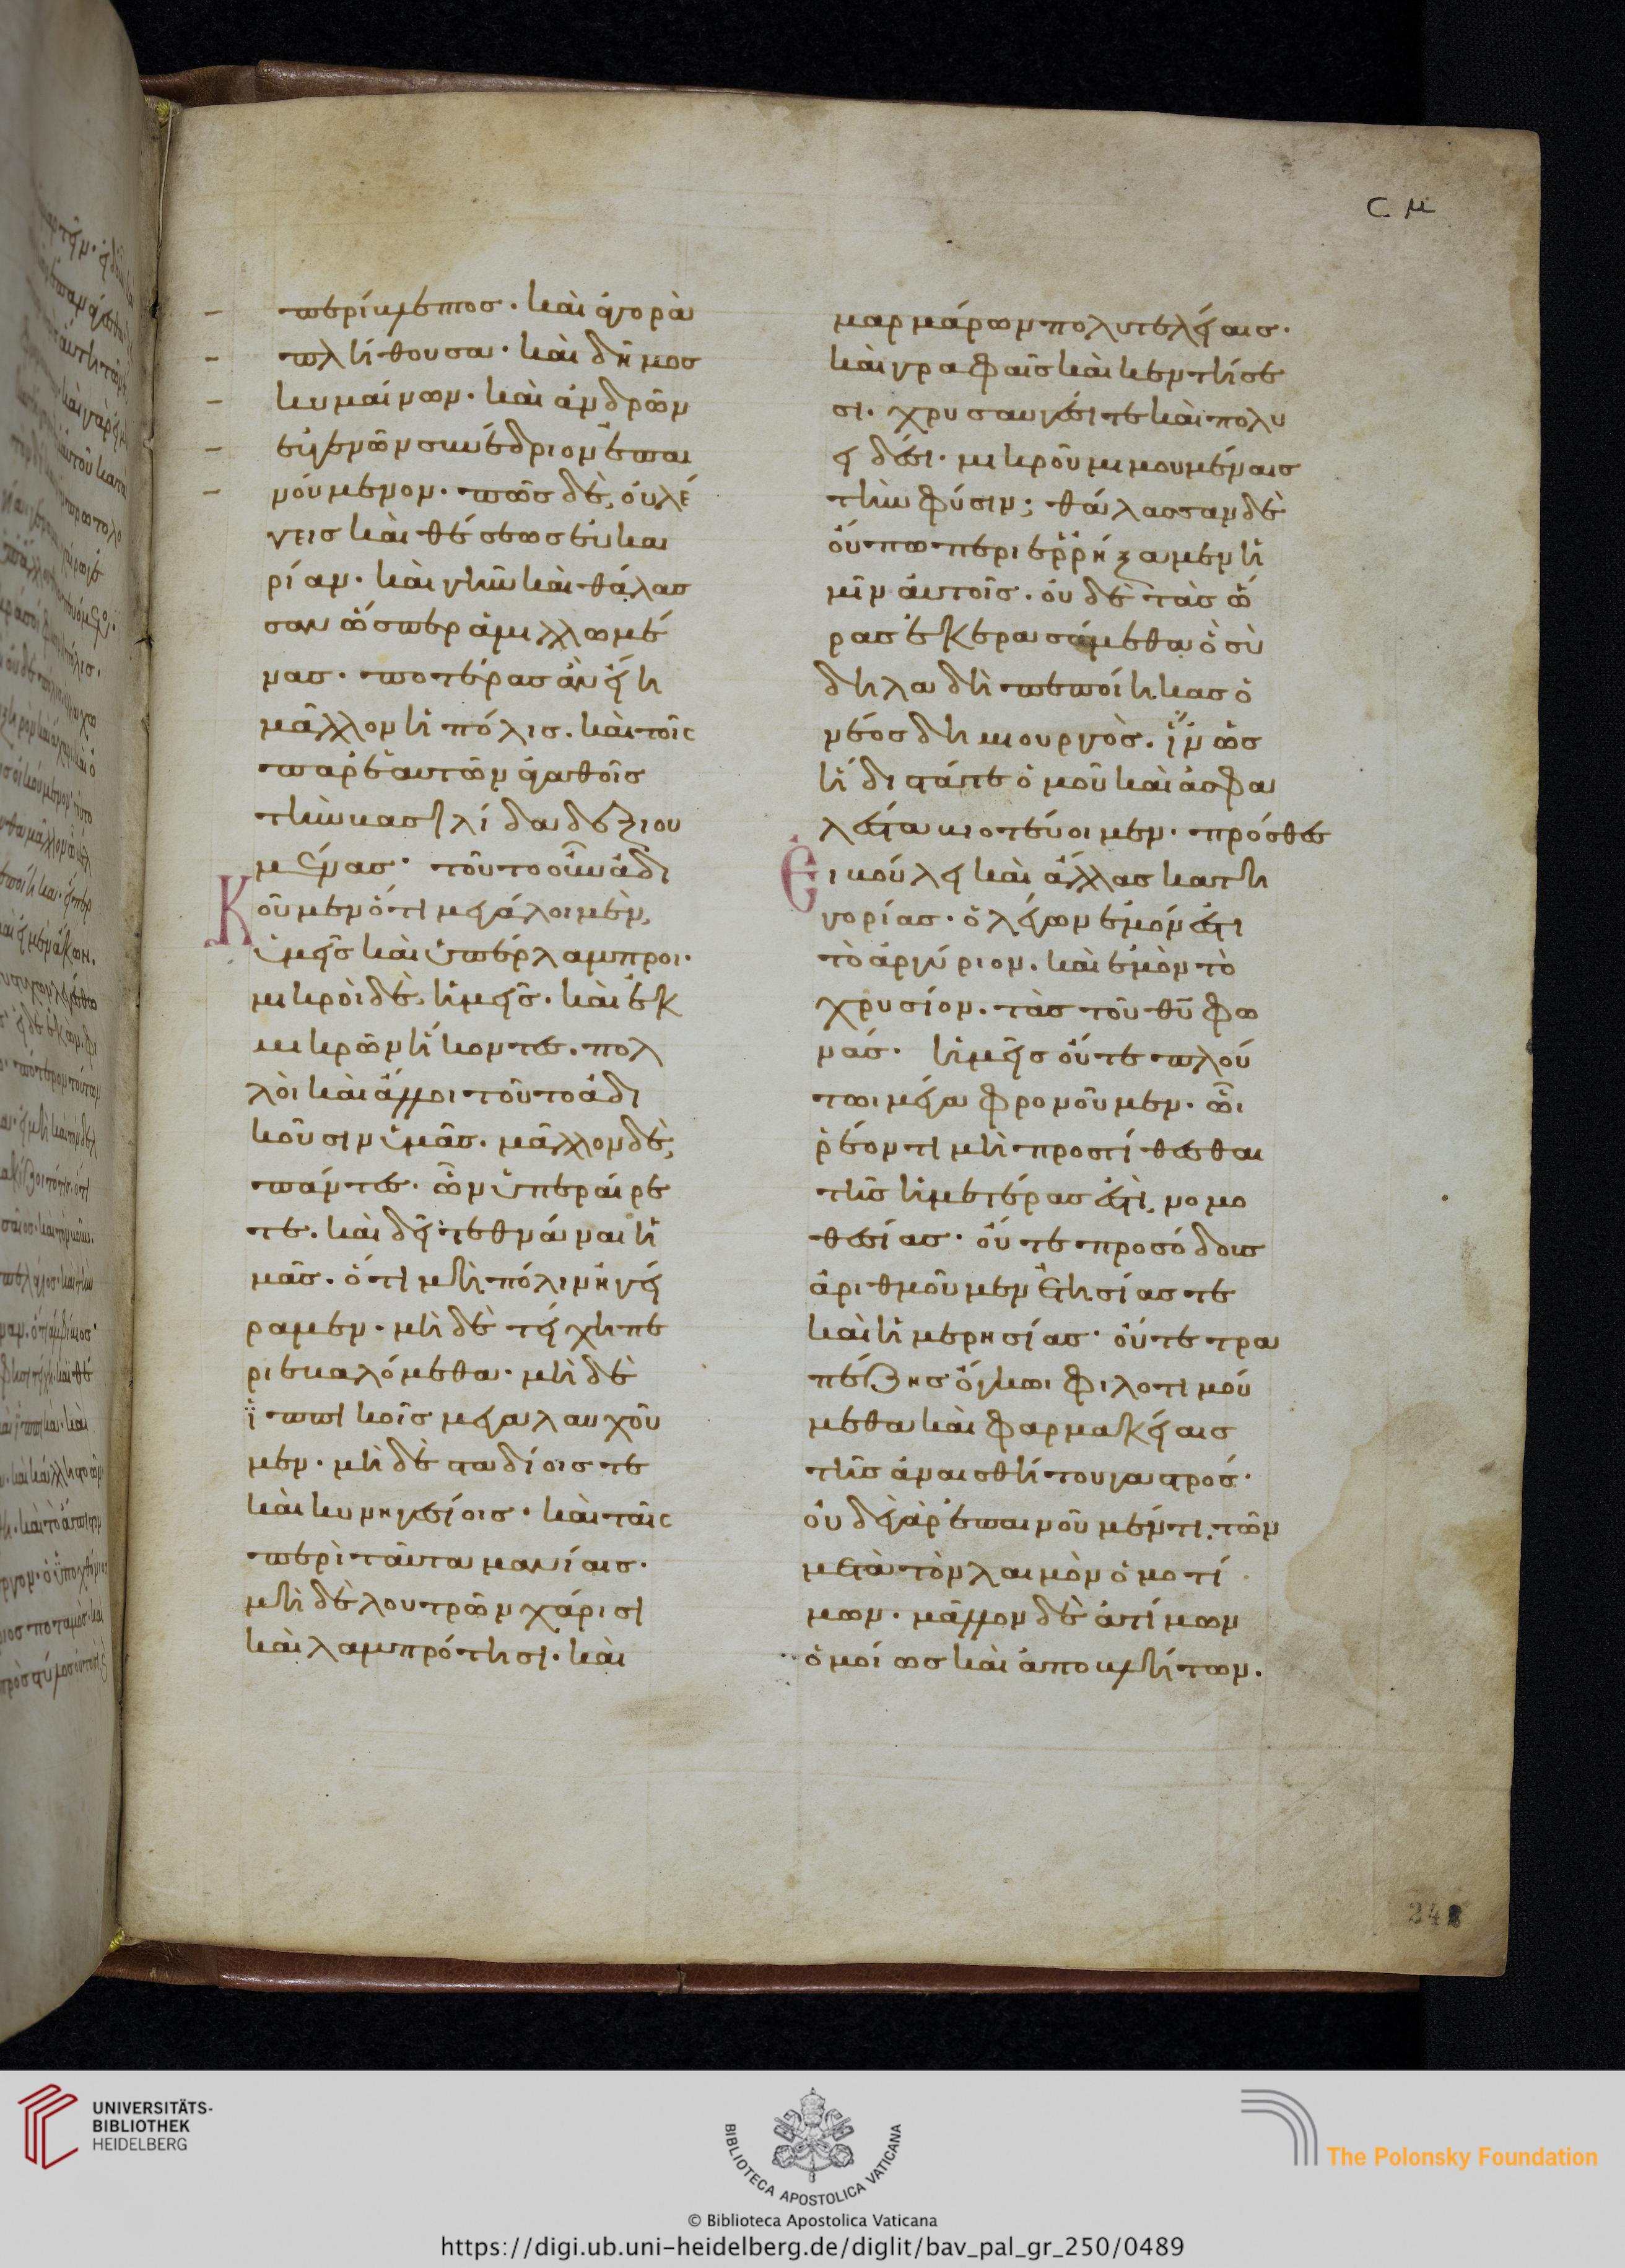 ϲμ
περίβλεπτος· καὶ ἀγορὰ
πλήθουσα· καὶ δῆμος
κυμαίνων· καὶ ἀνδρῶν
εὐγενῶν συνέδριον ἐπαι
νούμενον· πῶς δὲ, οὐ λέ
γεις καὶ θέσεως εὐκαι
ρίαν· καὶ γῆν καὶ θάλασ
σαν ὥσπερ ἁμιλλωμέ
νας· ποτέρας ἂν εἴη
μᾶλλον ἡ πόλις. καὶ τοῖς
παρ' ἑαυτῶν ἀγαθοῖς
τὴν βασιλίδα δεξιου
μένας· τοῦτο οὖν ἀδι
κοῦμεν ὅτι μεγάλοι μὲν,
ὑμεῖς καὶ ὑπέρλαμπροι·
μικροὶ δὲ, ἡμεῖς· καὶ ἐκ
μικρῶν ἥκοντες. πολ
λοὶ καὶ ἄλλοι τοῦτο ἀδι
κοῦσιν ὑμᾶς. μᾶλλον δὲ,
πάντες· ὧν ὑπεραίρε
τε. καὶ δεῖ τεθνάναι ἡ
μᾶς. ὅτι μὴ πόλιν ἠγεί
ραμεν· μὴ δὲ τείχη πε
ριεβαλόμεθα· μὴ δὲ
ἱππικοῖς μεγαλαυχοῦ
μεν· μὴ δὲ σταδίοις τε
καὶ κυνηγεσίοις· καὶ ταῖς
περὶ ταῦτα μανίαις·
μὴ δὲ λουτρῶν χάρισι
καὶ λαμπρότησι· καὶ
μαρμάρων πολυτελείαις·
καὶ γραφαῖς καὶ κεντήσε
σι· χρυσαυγέσι τε καὶ πολυ
ειδέσι· μικροῦ μιμουμέναις
τὴν φύσιν; θάλασσαν δὲ
οὔπω περιερρήξαμεν ἡ
μῖν αὐτοῖς· οὐ δὲ τὰς ὥ
ρας ἐκερασάμεθα ὃ σὺ
δηλαδὴ πεποίηκας ὁ
νέος δημιουργὸς. ἵν ὡς
ἥδιστά τε ὁμοῦ καὶ ἀσφα
λέστα βιοτεύοιμεν· πρόσθες
εἰ βούλει καὶ ἄλλας κατη
γορίας· ὁ λέγων ἐμόν ἐστι
τὸ ἀργύριον. καὶ ἐμὸν τὸ
χρυσίον. τὰς τοῦ θῦ φω
νάς· ἡμεῖς οὔτε πλού
τωι μέγα φρονοῦμεν· ὧι
ῥέοντι μὴ προστίθεσθαι
τῆς ἡμετέρας ἐστὶ νομο
θεσίας· οὔτε προσόδους
ἀριθμοῦμεν ἐτησίας τε
καὶ ἡμερησίας· οὔτε τρα
πέζης ὄγκωι φιλοτιμού
μεθα καὶ φαρμακείαις
τῆς ἀναισθήτου γαστρος·
οὐδὲ γὰρ ἐπαινοῦμέν τι τῶν
μετὰ τὸν λαιμὸν ὁμοτί
μων· μᾶλλον δὲ ἀτίμων
ὁμοίως καὶ ἀποβλήτων.
UNIVERSITÄTS-
BIBLIOTHEK
HEIDELBERG
BIBLIOTECA APOSTOLICA VATICANA
The Polonsky Foundation
© Biblioteca Apostolica Vaticana
https://digi.ub.uni-heidelberg.de/diglit/bav_pal_gr_250/0489